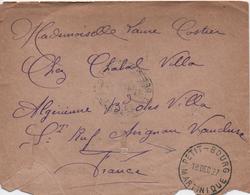 Mademoiselle Laure Costier
Chez Chabal Villa
Algérienne 135 des Villa
St Ruf Avignon Vaucluse
France
PETIT-BOURG
18 DEC 27
MARTINIQUE